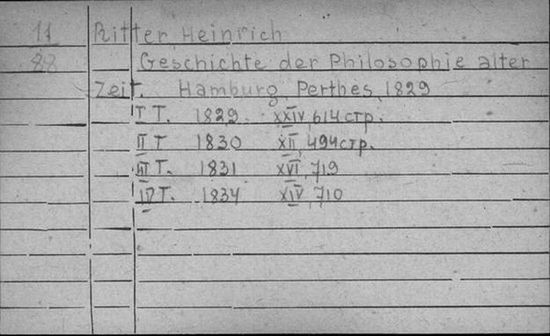 11 Ritter, Heinrich
88 Geschichte der Philosophie alter
Zeit. Hamburg, Perthes, 1829
I T. 1829. XXIV, 614 стр.
II T 1830 XII, 494 стр.
III T. 1831 XVI, 719
IV T. 1834 XIV, 710